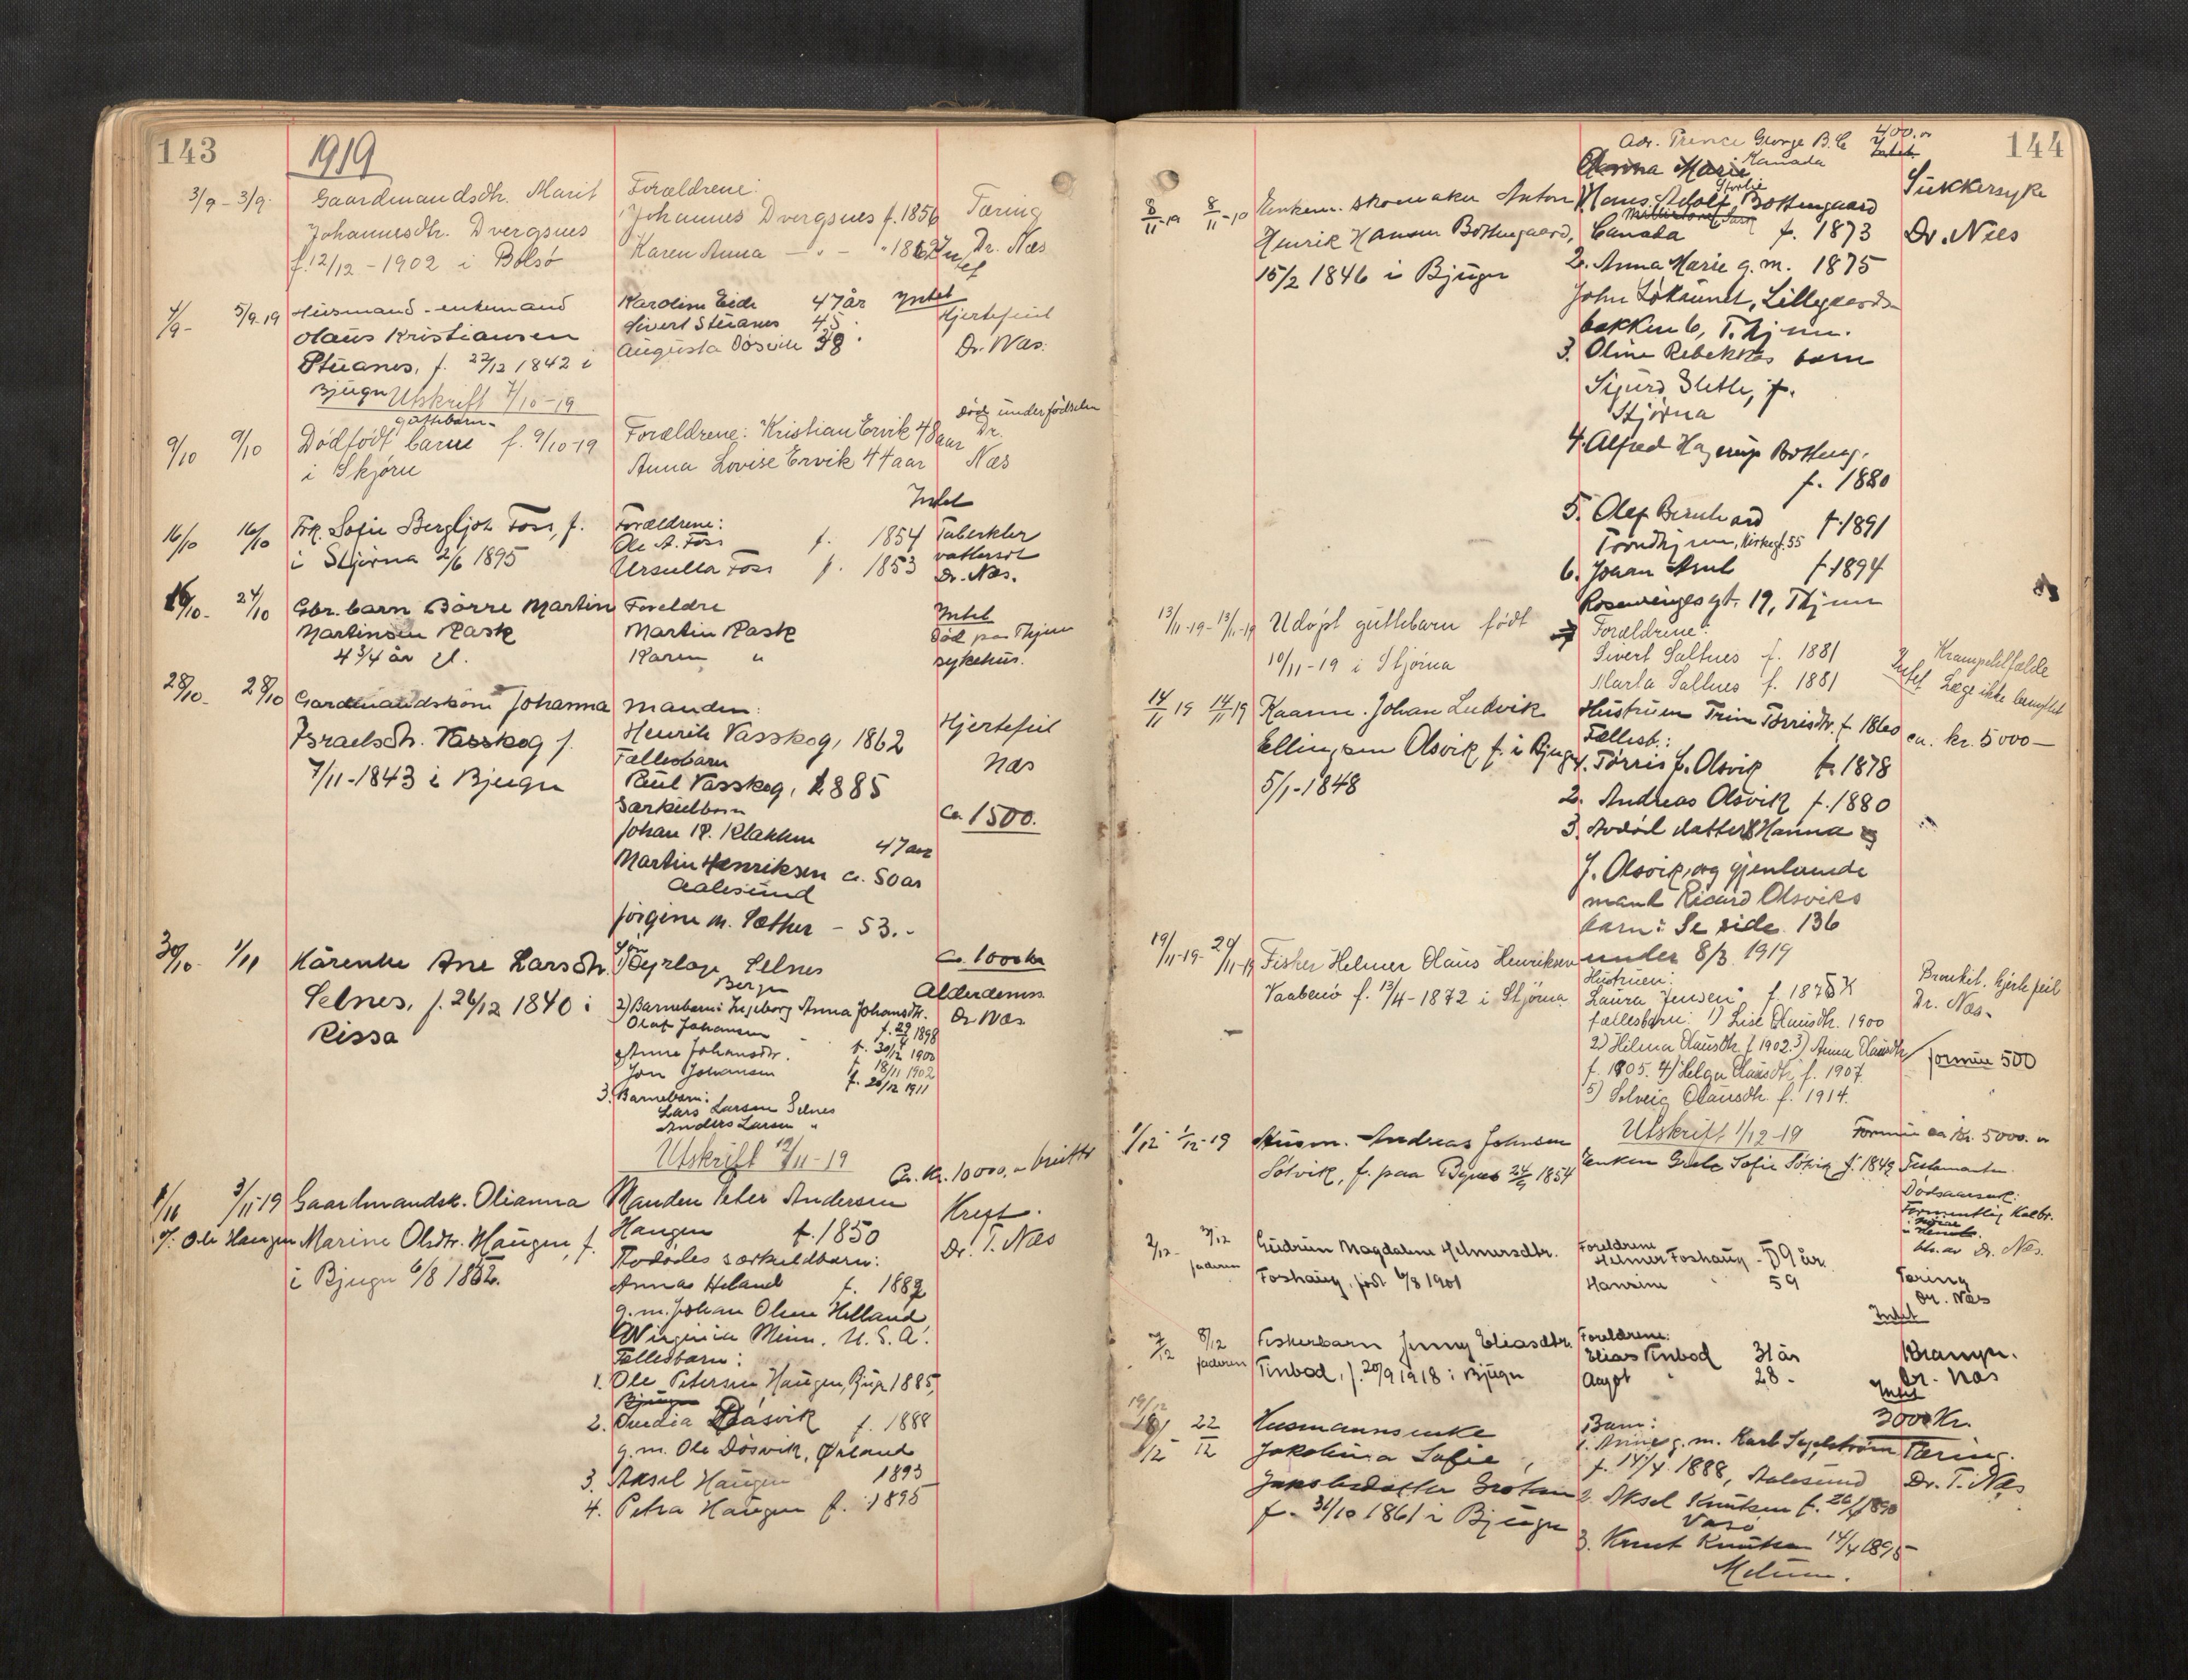 143
1919
3/9 - 3/9. Gaardmandsdtr. Marit
Johannesdtr. Dvergsnes
f. 12/12 - 1902 i Bolsø
Forældrene:
Johannes Dvergsnes f. 1856
Karen Anna — " — " 1862
Intet
Tæring
Dr. Næs
4/9 - 5/9-19 Husmand - enkemand
Olaus Kristiansen
Stuanes, f. 22/12 1842 i
Bjugn Utskrift 7/10-19
Karoline Eide 47 år Intet
Sivert Stuanes 45
Augusta Dösvik 38
Hjertefeil
Dr. Næs.
9/10 9/10 Dödfödt guttebarn f. 9/10-19
i Skjörn
Forældrene: Kristian Ervik 48 aar
Anna Lovise Ervik 44 aar
död under födselen
Dr.
Næs
Intet
16/10 16/10 Frk. Sofie Bergljot Foss, f.
i Stjørna 2/6 1895
Forældrene:
Ole A. Foss f. 1854
Ursulla Foss f. 1853
Tuberkler
Dr. Næs.
16/10 - 24/10 Gbr. barn Börre Martin
Martinsen Rask
4 3/4 år gl.
Foreldre
Martin Rask
Karen "
Intet
Död paa Thjem
sykehus.
28/10 - 28/10 Gardmandskone Johanna
Israelsdtr. Vasskog f.
7/11-1843 i Bjugn
Manden:
Henrik Vasskog, 1862
Fællesbarn
Paul Vasskog, 1885
Særkulbarn
Johan P. Klakken 47 aar
Martin Henriksen ca. 50 aar
Aalesund
Jörgine M. Sæther - 53. -
Hjertefeil
Næs
Ca. 1500.
30/10 - 1/11 Kårenke Ane Larsdtr.
Selnes, f. 26/12 1840 i
Rissa
Selnes
Bergen
2) Barnebarn: Ingeborg Anna Johansdtr.
Olaf Johansen f. 29/4 1898
Anna Johansdtr. f. 30/12 1900
Jon Johansen f. 18/11 1902
f. 26/12 1911
3. Barnebarn:
Lars Larsen Selnes
Anders Larsen "
Utskrift 19/11-19
Ca. 1000 kr
Alderdoms
Dr Næs
Ca. Kr. 10000. - brutto
1/11 3/11-19 Gaardmandsk. Olianna
v. Ole Haugen Marine Olsdtr. Haugen, f.
i Bjugn 6/8 1852.
Manden Peter Andersen
Haugen f. 1850
Avdødes særkuldbarn:
Annas Heland f. 1882
g. m. Johan Olsen Helland
Wirginia Minn. U. S. A.
Fællesbarn:
1. Ole Petersen Haugen, Bjugn 1885,
Bjugn
2. Dösvik f. 1888
g. m. Ole Dösvik, Ørland
3. Aksel Haugen 1893
4. Petra Haugen f. 1895
Kreft.
Dr. T. Næs
144
Adr. Prince George B. C. Kanada
400. -
Intet
8/11-19 8/11-19 Enkem. skomaker Anton
Henrik Hansen Bottengaard,
15/2 1846 i Bjugn
Anna Marie
Hans Adolf Bottengaard
Canada f. 1873
2. Anna Marie g. m. 1875
John Løkaunet, Lillegaards-
bakken 6, T.hjem.
3. Oline Rebekkas barn
Sigurd Slette, f.
Stjørna
4. Alfred Hagerup Botteng.
f. 1880
5. Olef Bernhard f. 1891
Trondhjem, Kirkegt. 55
6. Johan Arnt f. 1894
Rosenvinges gt. 19, Thjem
Sukkersyke
Dr. Næs
13/11-19 - 13/11-19 Udøpt guttebarn født
10/11-19 i Stjørna
Forældrene:
Sivert Saltnes f. 1881
Marta Saltnes f. 1881
Intet
Krampetilfælde
Læge ikke benyttet
14/11 19 14/11-19 Kaarm. Johan Ludvik
Ellingsen Olsvik f. i Bjugn
5/1-1848
Hustruen Trine Tørrisdtr. f. 1860
Fællesb.:
1. Tørris J. Olsvik f. 1878
2. Andreas Olsvik f. 1880
3. Avdöd datter Hanna
J. Olsvik, og gjenlevende
mand Ricard Olsviks
barn: Se side 136
under 8/3. 1919
ca. kr. 5000 —
19/11-19 - 29/11-19 Fisker Helmer Olaus Henriksen
Vaabenö f. 13/4-1872 i Stjørna
Hustruen:
Laura Jensen f. 1875
fællesbarn: 1) Lise Olausdtr. 1900
2) Helma Olausdtr. f. 1902. 3) Anna Olausdtr
f. 1905. 4) Helga Olausdtr. f. 1907.
5) Solveig Olausdtr. f. 1914.
Bronkit. Hjertefeil
Dr. Næs.
formue 500
1/12 1/12-19 Husm. Andreas Johnsen
Sølvik, f. paa Bynes 24/9 1854
Utskrift 1/12-19
Enken Grete Sofie Sølvik f. 1849
Formue ca Kr. 5000. -
Testamente.
Dødsaarsak:
Formentlig
Dr. Næs.
2/12 - 3/12 faderen Gudrun Magdalene Helmersdtr.
Foshaug, født 6/8 1901
Foreldrene
Helmer Foshaug - 59 år
Hansine " 59
Tæring
Dr. Næs
Intet
7/12 8/12 faderen Fiskerbarn Jenny Eliasdtr.
Tinbod, f. 20/9 1918 i Bjugn
Foreldrene:
Elias Tinbod 31 år
Aagot " 28 -
Krampe.
Dr. Næs
Intet
19/12 22/12 Husmannsenke
Jakobina Sofie
Jakobsdatter Groten
f. 31/10 1861 i Bjugn
Barn:
1. Anne g. m. Karl Segelström
f. 14/4 1888, Aalesund
2. Aksel Knutsen f. 26/4 1890
3. Knut Knutsen 14/4 1895
Melum.
3000 Kr.
Tæring.
Dr. T. Næs